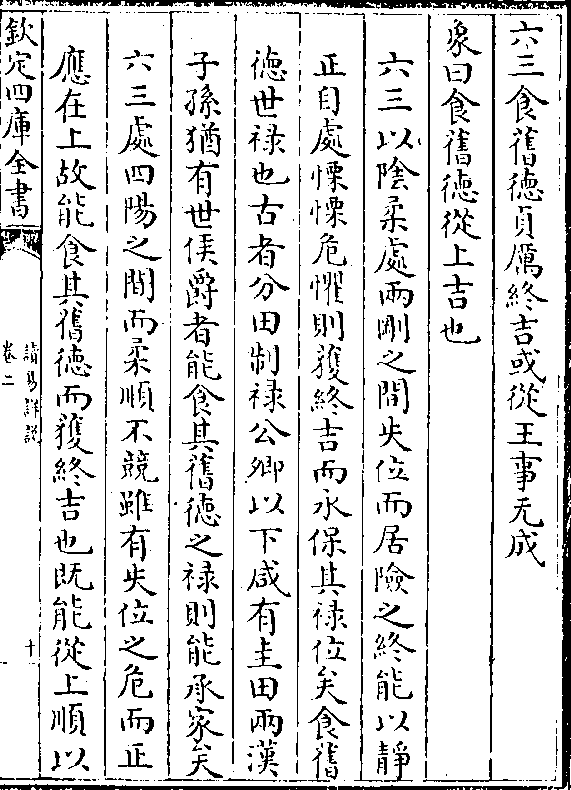 六三食舊徳貞厲終吉或從王事无成
象曰食舊徳從上吉也
六三以隂柔處兩剛之間失位而居險之終能以靜
正自處慄慄危懼則獲終吉而永保其禄位矣食舊
徳世禄也古者分田制禄公卿以下咸有圭田兩漢
子孫猶有世侯爵者能食其舊徳之禄則能承家矣
六三處四陽之間而柔順不競雖有失位之危而正
應在上故能食其舊徳而獲終吉也既能從上順以
欽定四庫全書
讀易詳説
卷二
十